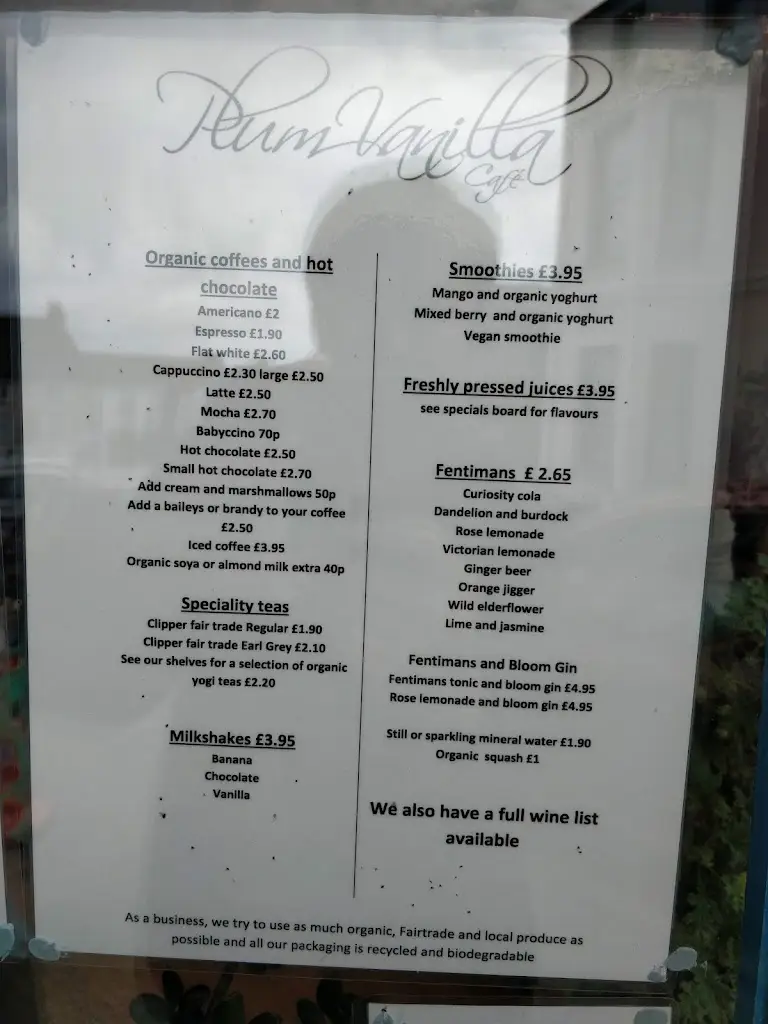 Plum Vanilla
Café
Organic coffees and hot
chocolate
Americano £2
Espresso £1.90
Flat white £2.60
Cappuccino £2.30 large £2.50
Latte £2.50
Mocha £2.70
Babyccino 70p
Hot chocolate £2.50
Small hot chocolate £2.70
Add cream and marshmallows 50p
Add a baileys or brandy to your coffee
£2.50
Iced coffee £3.95
Organic soya or almond milk extra 40p
Speciality teas
Clipper fair trade Regular £1.90
Clipper fair trade Earl Grey £2.10
See our shelves for a selection of organic
yogi teas £2.20
Milkshakes £3.95
Banana
Chocolate
Vanilla
Smoothies £3.95
Mango and organic yoghurt
Mixed berry and organic yoghurt
Vegan smoothie
Freshly pressed juices £3.95
see specials board for flavours
Fentimans £ 2.65
Curiosity cola
Dandelion and burdock
Rose lemonade
Victorian lemonade
Ginger beer
Orange jigger
Wild elderflower
Lime and jasmine
Fentimans and Bloom Gin
Fentimans tonic and bloom gin £4.95
Rose lemonade and bloom gin £4.95
Still or sparkling mineral water £1.90
Organic squash £1
We also have a full wine list
available
As a business, we try to use as much organic, Fairtrade and local produce as
possible and all our packaging is recycled and biodegradable